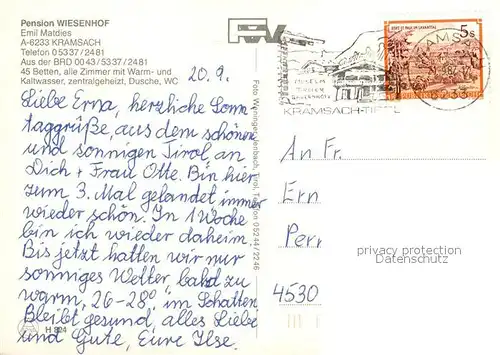 Pension WIESENHOF
Emil Matties
A-6233 KRAMSACH
Telefon 05337/2481
Aus der BRD 0043/5337/2481
45 Betten, alle Zimmer mit Warm- und
Kaltwasser, zentralgeheizt, Dusche, WC
20.9.
Liebe Erna, herzliche Sonn
taggrüße, aus dem schönen
und sonnigen Tirol, an
Dich + Frau Otte. Bin hier
zum 3. Mal gelandet immer
wieder schön. In 1 Woche
bin ich wieder daheim.
Bis jetzt hatten wir nur
sonniges Wetter, bald zu
warm, 26-28° im Schatten
Bleibt gesund, alles Liebe
und Gute, Eure Ilse.
H 824
Tirol, Telefon 05244/2246
KRAMSACH-TIROL
5s
An Fr.
Ern
Perr
4530
privacy protection
Datenschutz